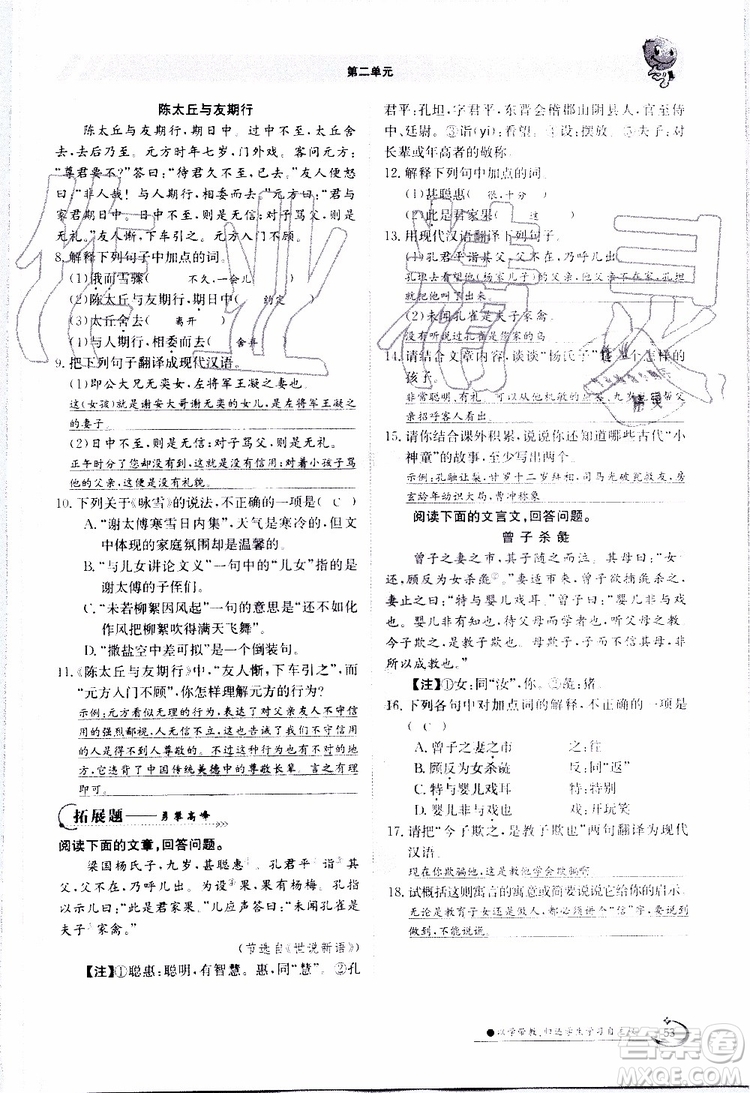 第二单元
陈太丘与友期行
陈太丘与友期行,期日中。过中不至,太丘舍
去,去后乃至。元方时年七岁,门外戏。客问元方:
“尊君在不?”答曰:“待君久不至,已去。”友人便怒
曰:“非人哉!与人期行,相委而去。”元方曰:“君与
家君期日中。日中不至,则是无信;对子骂父,则是
无礼。”友人惭,下车引之。元方入门不顾。
8.解释下列句子中加点的词。
(1)俄而雪骤( 不久,一会儿 )
(2)陈太丘与友期行,期日中( 约定 )
(3)太丘舍去( 离开 )
(4)与人期行,相委而去( 舍弃 )
9.把下列句子翻译成现代汉语。
(1)即公大兄无奕女,左将军王凝之妻也。
这(女孩)就是谢安大哥谢无奕的女儿,左将军王凝之
的妻子。
(2)日中不至,则是无信;对子骂父,则是无礼。
正午时分了您都没有到,这就是没有信用;对孩子骂他
的父亲,这就是没有礼貌。
10.下列关于《咏雪》的说法,不正确的一项是( C )
A.“谢太傅寒雪日内集”,天气是寒冷的,但文
中体现的家庭氛围却是温馨的。
B.“与儿女讲论文义”一句中的“儿女”指的是
谢太傅的子侄们。
C.“未若柳絮因风起”一句的意思是“还不如化
作风把柳絮吹得满天飞舞”。
D.“撒盐空中差可拟”是一个倒装句。
11.《陈太丘与友期行》中,“友人惭,下车引之”,而
“元方入门不顾”,你怎样理解元方的行为?
示例:元方看似无理的行为,表达了对父亲友人不守信用
的强烈鄙视,人无信不立,对于一个不讲诚信、不知礼仪
的人是得不到别人尊敬的。不过这种行为也有不对的地
方,应该遵从中国传统美德中的尊敬长辈。(言之有理
即可)
拓展题——勇攀高峰
阅读下面的文章,回答问题。
梁国杨氏子,九岁,甚聪惠①。孔君平②诣③其
父,父不在,乃呼儿出。为设④果,果有杨梅。孔
指以示儿曰:“此是君家果。”儿应声答曰:“未闻孔雀是
夫子⑤家禽。”
(节选自《世说新语》)
【注】①聪惠:聪明,有智慧。惠,同“慧”。②孔
君平:孔坦,字君平,东晋会稽郡山阴县人,官至侍
中、廷尉。③诣(yì):看望。④设:摆放。⑤夫子:对
长辈或年高者的敬称。
12.解释下列句中加点的词。
(1)甚聪惠( 很,十分 )
(2)此是君家果( 这 )
13.用现代汉语翻译下列句子。
(1)孔君平诣其父,父不在,乃呼儿出。
孔坦去看望他(杨家儿子)的父亲,他的父亲不在,于是
便叫他出来。
(2)未闻孔雀是夫子家禽。
我没听说过孔雀是您家的鸟。
14.请结合文章内容,谈谈“杨氏子”是一个怎样的
孩子。
父亲招呼客人。
15.请你结合课外积累,说说你还知道哪些古代“小
神童”的故事,至少写出两个。
示例:孔融让梨,甘罗十二岁拜相,司马光砸缸,房
玄龄年幼识大局,曹冲称象
阅读下面的文言文,回答问题。
曾子杀彘
曾子之妻之市,其子随之而泣。其母曰:“女
还,顾反为女杀彘。”妻适市来,曾子欲捕彘杀之。
妻止之曰:“特与婴儿戏耳。”曾子曰:“婴儿非与戏
也。婴儿非有知也,待父母而学者也,听父母之教。
今子欺之,是教子欺也。母欺子,子而不信其母,
非所以成教也。”
【注】①女:同“汝”,你。②彘:猪。
16.下列各句中对加点词的解释,不正确的一项是
( C )
A.曾子之妻之市 之:往
B.顾反为女杀彘 反:同“返”
C.特与婴儿戏耳 特:特别
D.婴儿非与戏也 戏:开玩笑
17.请把“今子欺之,是教子欺也”两句翻译为现代
汉语。
现在你欺骗他,这是教孩子骗人啊!
18.试概括这则寓言的寓意或简要说说它给你的启示。
无论是教育子女还是做人,都必须讲个“信”字,要说到
做到,不能说谎。
53
MXQE.COM